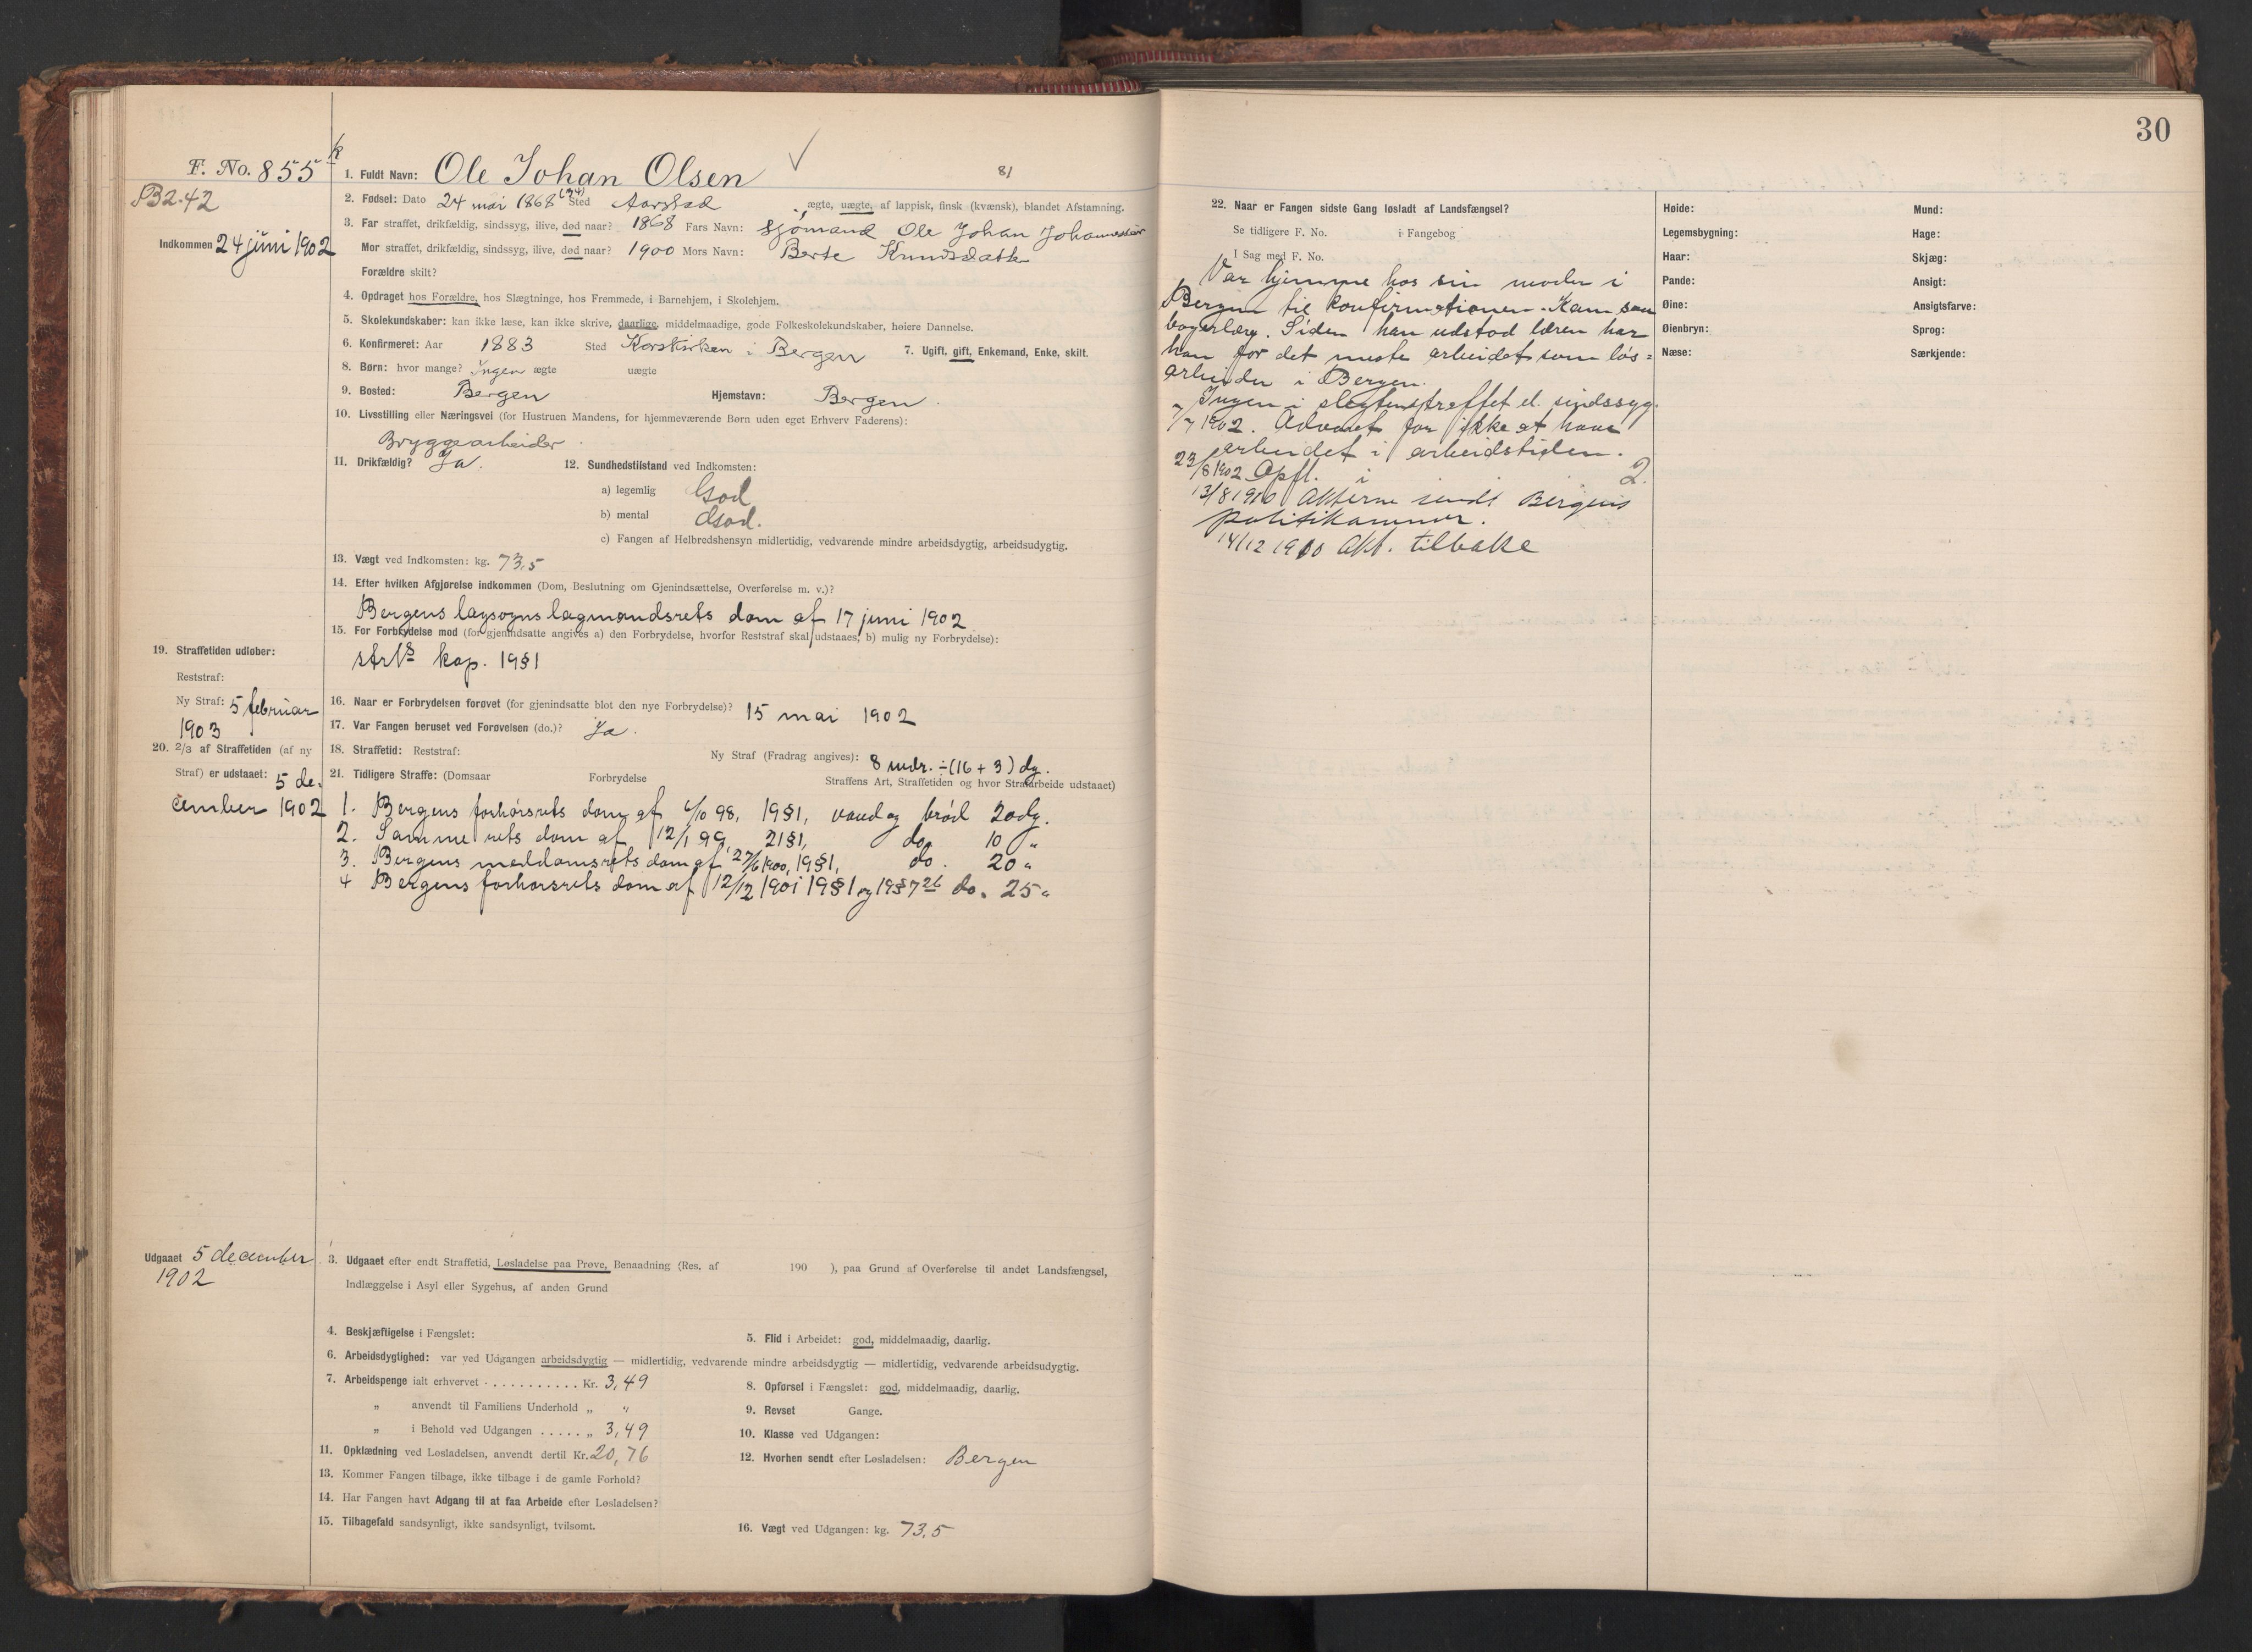 30
F. No. 855
B2.42
Indkommen 24 juni 1902
1. Fuldt Navn: Ole Johan Olsen
81
2. Fødsel: Dato 24 mai 1868 (34) Sted Aarstad ægte, uægte, af lappisk, finsk (kvænsk), blandet Afstamning.
3. Far straffet, drikfældig, sindssyg, ilive, død naar? 1868 Fars Navn: sjømand Ole Johan Johannessen
Mor straffet, drikfældig, sindssyg, ilive, død naar? 1900 Mors Navn: Berte Knudsdatter
Forældre skilt?
4. Opdraget hos Forældre, hos Slægtninge, hos Fremmede, i Barnehjem, i Skolehjem.
5. Skolekundskaber: kan ikke læse, kan ikke skrive, daarlige, middelmaadige, gode Folkeskolekundskaber, høiere Dannelse.
6. Konfirmeret: Aar 1883 Sted Korskirken i Bergen 7. Ugift, gift, Enkemand, Enke, skilt.
8. Børn: hvor mange? Ingen ægte uægte
9. Bosted: Bergen Hjemstavn: Bergen.
10. Livsstilling eller Næringsvei (for Hustruen Mandens, for hjemmeværende Børn uden eget Erhverv Faderens):
Bryggearbeider.
11. Drikfældig? Ja. 12. Sundhedstilstand ved Indkomsten:
a) legemlig God
b) mental God.
c) Fangen af Helbredshensyn midlertidig, vedvarende mindre arbeidsdygtig, arbeidsudygtig.
13. Vægt ved Indkomsten: kg. 73,5
14. Efter hvilken Afgjørelse indkommen (Dom, Beslutning om Gjenindsættelse, Overførelse m. v.)?
Bergens lagsogns lagmandsrets dom af 17 juni 1902
15. For Forbrydelse mod (for gjenindsatte angives a) den Forbrydelse, hvorfor Reststraf skal udstaaes, b) mulig ny Forbrydelse):
strls kap. 19§1
16. Naar er Forbrydelsen forøvet (for gjenindsatte blot den nye Forbrydelse)? 15 mai 1902
17. Var Fangen beruset ved Forøvelsen (do.)? Ja.
18. Straffetid: Reststraf: Ny Straf (Fradrag angives): 8 mdr. ÷ (16 + 3) dg.
19. Straffetiden udløber:
Reststraf:
Ny Straf: 5 februar
1903
20. 2/3 af Straffetiden (af ny
Straf) er udstaaet: 5 de-
cember 1902
21. Tidligere Straffe: (Domsaar Forbrydelse Straffens Art, Straffetiden og hvor Strafarbeide udstaaet)
1. Bergens forhørsrets dom af 6/10 98, 19§1, vand og brød 20dg.
2. Samme rets dom af 12/1 99, 21§1, do. 10 "
3. Bergens meddomsrets dom af 27/6 1900, 19§1, do. 20 "
4 Bergens forhørsrets dom af 12/12 1901 19§1 og 19§7 do. 25 "
Udgaaet 5 december
1902
3. Udgaaet efter endt Straffetid, Løsladelse paa Prøve, Benaadning (Res. af 190 ), paa Grund af Overførelse til andet Landsfængsel,
Indlæggelse i Asyl eller Sygehus, af anden Grund
4. Beskjæftigelse i Fængslet: 5. Flid i Arbeidet: god, middelmaadig, daarlig.
6. Arbeidsdygtighed: var ved Udgangen arbeidsdygtig — midlertidig, vedvarende mindre arbeidsdygtig — midlertidig, vedvarende arbeidsudygtig.
7. Arbeidspenge ialt erhvervet . . . . . . . . . . . Kr. 3,49 8. Opførsel i Fængslet: god, middelmaadig, daarlig.
„ anvendt til Familiens Underhold „ " 9. Revset Gange.
„ i Behold ved Udgangen . . . . . „ 3,49 10. Klasse ved Udgangen:
11. Opklædning ved Løsladelsen, anvendt dertil Kr. 20,76 12. Hvorhen sendt efter Løsladelsen: Bergen
13. Kommer Fangen tilbage, ikke tilbage i de gamle Forhold?
14. Har Fangen havt Adgang til at faa Arbeide efter Løsladelsen?
15. Tilbagefald sandsynligt, ikke sandsynligt, tvilsomt. 16. Vægt ved Udgangen: kg. 73,5
22. Naar er Fangen sidste Gang løsladt af Landsfængsel?
Se tidligere F. No. i Fangebog
I Sag med F. No.
Var hjemme hos sin moder i
Bergen til konfirmationen. Kam saa
bagerlære. Siden han udstod læren har
han for det meste arbeidet som løs=
arbeider i Bergen.
Ingen i slegten straffet el. sindssyg.
7/7 1902. Advaret for ikke at have
arbeidet i arbeidstiden.
23/8 1902 Opfl. i 2.
13/8 1910 Akterne sendt Bergens
politikammer.
14/12 1910 Akt. tilbake
Høide: Mund:
Legemsbygning: Hage:
Haar: Skjæg:
Pande: Ansigt:
Øine: Ansigtsfarve:
Øienbryn: Sprog:
Næse: Særkjende: